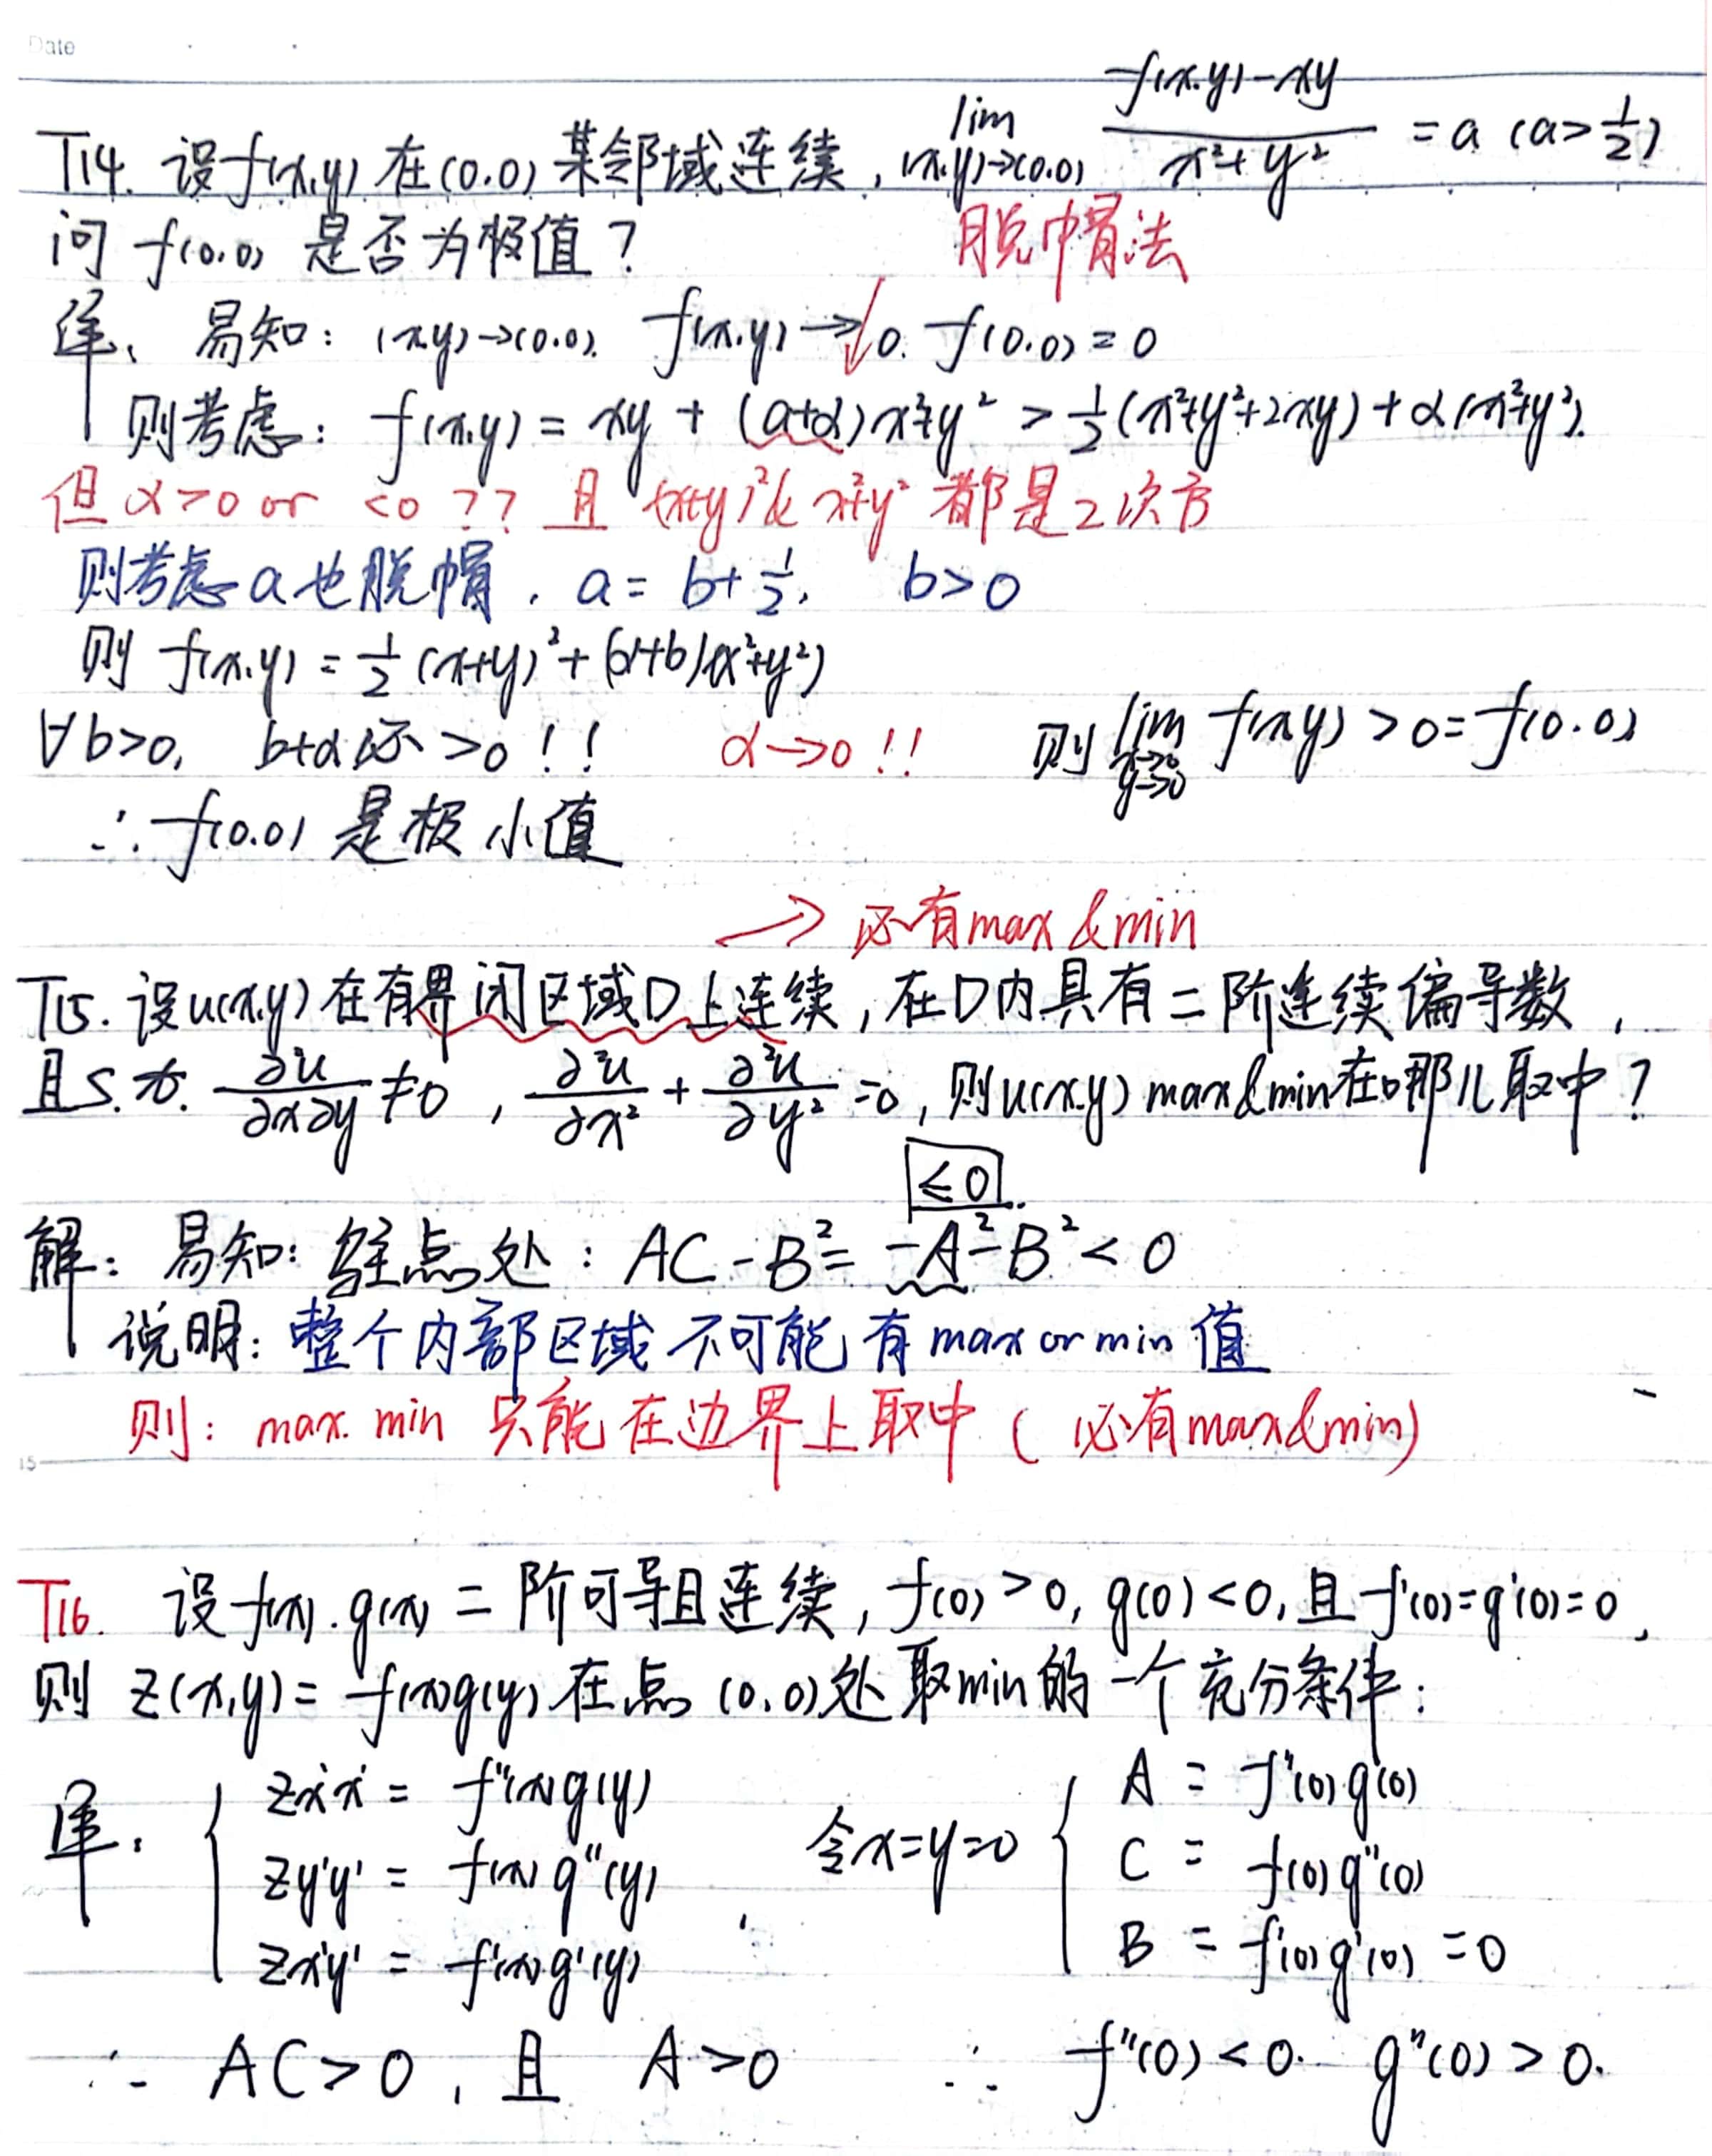 Date
T14. 设f(x,y) 在(0.0) 某邻域连续, lim (x.y)→(0.0) f(x.y)-xy / x²+y² = a (a>1/2)
问 f(0.0) 是否为极值?
脱帽法
详、易知: (x.y)→(0.0). f(x.y)→0. f(0.0)=0
则考虑: f(x.y) = xy + (a+α)x²+y² > 1/2(x²+y²+2xy)+α(x²+y²).
但 α>0 or <0 ?? 且 (x+y)²& x²+y² 都是2次方
则考虑a也脱帽. a= b+1/2, b>0
则 f(x.y) = 1/2 (x+y)²+(α+b)(x²+y²)
∀b>0, b+α必>0!! α→0!! 则 lim x→0 y→0 f(x.y) >0= f(0.0)
∴ f(0.0) 是极小值
→ 必有max&min
T15. 设u(x.y)在有界闭区域D上连续,在D内具有二阶连续偏导数,
且s.t. ∂²u/∂x∂y ≠0, ∂²u/∂x² + ∂²u/∂y² =0, 则u(x.y) max&min在哪儿取中?
≤0
解: 易知: 驻点处: AC-B²= -A²-B²<0
说明: 整个内部区域不可能有max or min值
则: max. min 只能在边界上取中 (必有max&min)
15
T16. 设f(x).g(x)二阶可导且连续, f(0)>0, g(0)<0, 且f'(0)=g'(0)=0,
则 z(x,y)= f(x)g(y)在点 (0,0)处取min的一个充分条件:
详: { zx'x' = f''(x)g(y) 令x=y=0 { A = f''(0)g(0)
zy'y' = f(x)g''(y) C = f(0)g''(0)
zx'y' = f'(x)g'(y) B = f'(0)g'(0) =0
∴ AC>0, 且 A>0 ∴ f''(0)<0. g''(0)>0.